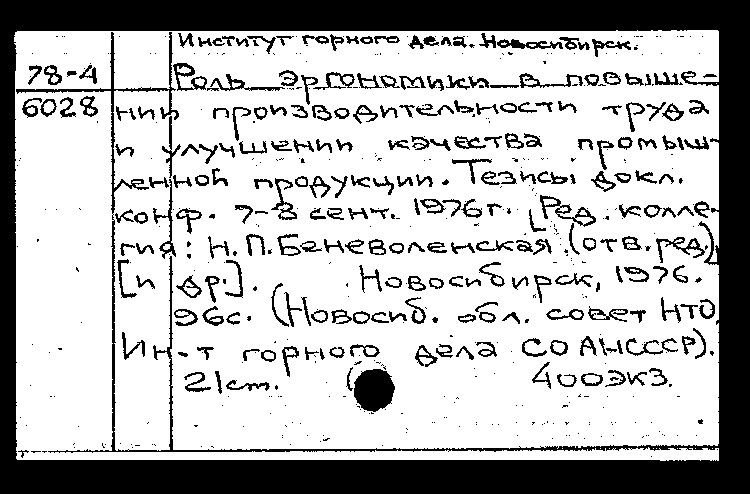 Институт горного дела. Новосибирск.
78-4 Роль эргономики в повыше-
6028 нии производительности труда
и улучшении качества промыш-
ленной продукции. Тезисы докл.
конф. 7-8 сент. 1976г. [Ред. колле-
гия: Н.П.Беневоленская (отв.ред)],
[и др.]. Новосибирск, 1976.
96с. (Новосиб. обл. совет НТО,
Ин-т горного дела СО АНСССР).
21см. 400экз.